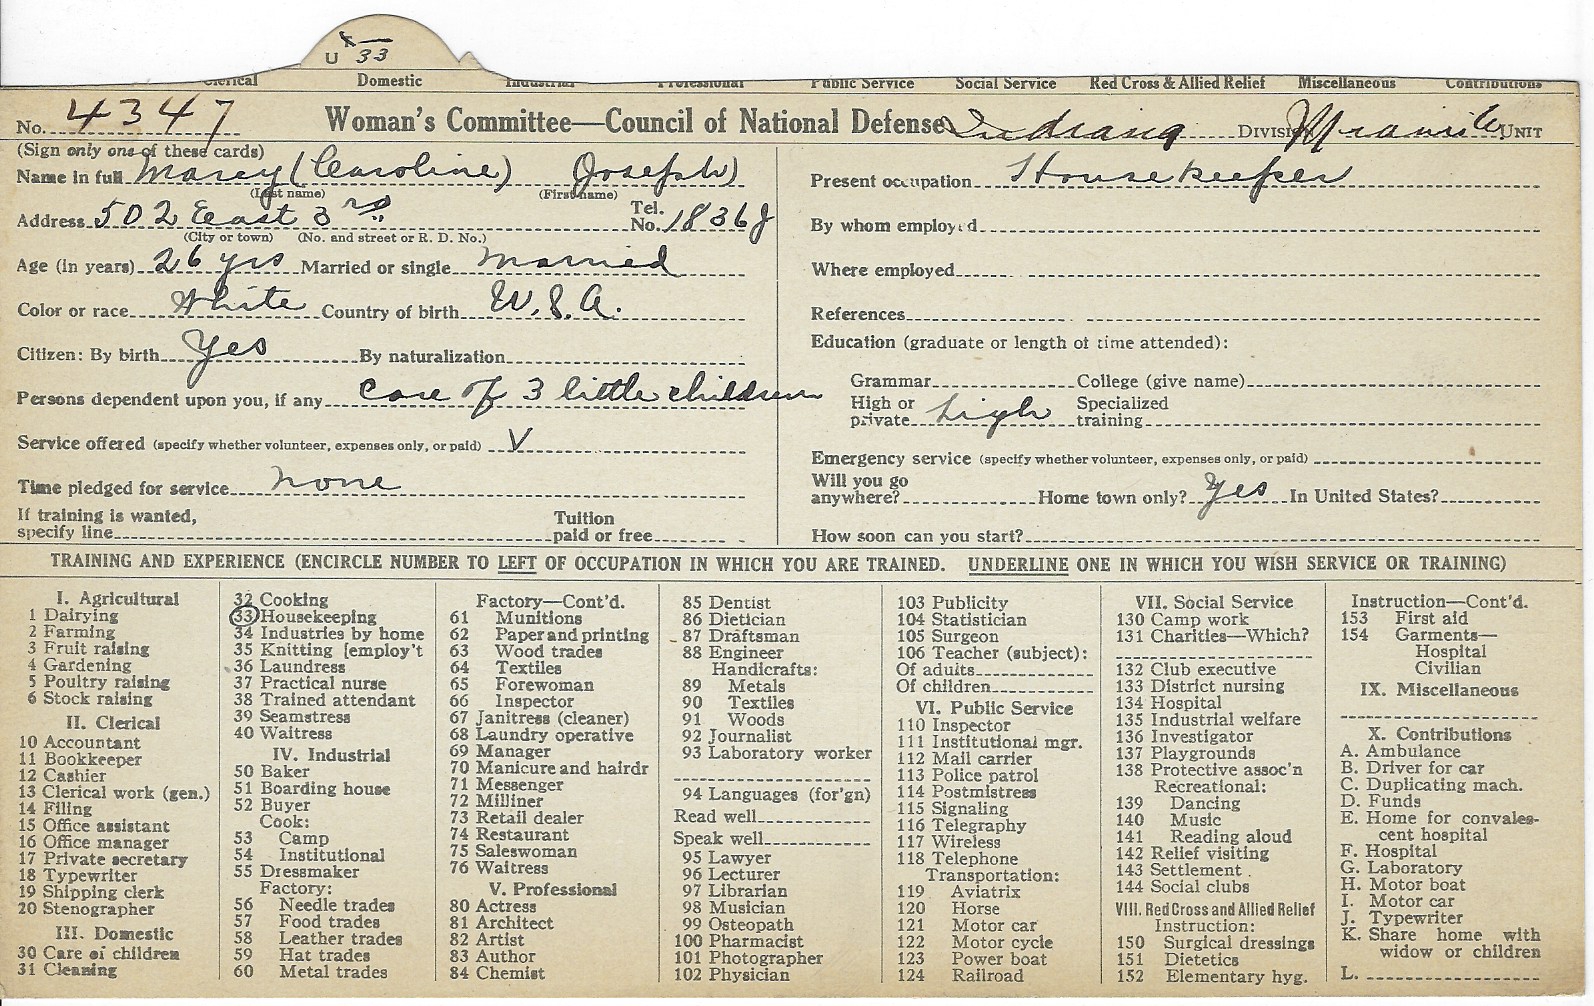 U 33
Clerical Domestic Industrial Professional Public Service Social Service Red Cross & Allied Relief Miscellaneous Contributions
No. 4347 Woman's Committee—Council of National Defense Indiana DIVISION UNIT
(Sign only one of these cards)
Name in full Marcy (Caroline) Joseph)
(Last name) (First name)
Address 502 East 3rd Tel. No. 1836J
(City or town) (No. and street or R. D. No.)
Age (in years) 26 yrs Married or single Married
Color or race White Country of birth U.S.A.
Citizen: By birth Yes By naturalization
Persons dependent upon you, if any Care of 3 little children
Service offered (specify whether volunteer, expenses only, or paid) V
Time pledged for service none
If training is wanted, specify line Tuition paid or free
Present occupation Housekeeper
By whom employed
Where employed
References
Education (graduate or length of time attended):
Grammar College (give name)
High or private high Specialized training
Emergency service (specify whether volunteer, expenses only, or paid)
Will you go anywhere? Home town only? Yes In United States?
How soon can you start?
TRAINING AND EXPERIENCE (ENCIRCLE NUMBER TO LEFT OF OCCUPATION IN WHICH YOU ARE TRAINED. UNDERLINE ONE IN WHICH YOU WISH SERVICE OR TRAINING)
I. Agricultural
1 Dairying
2 Farming
3 Fruit raising
4 Gardening
5 Poultry raising
6 Stock raising
II. Clerical
10 Accountant
11 Bookkeeper
12 Cashier
13 Clerical work (gen.)
14 Filing
15 Office assistant
16 Office manager
17 Private secretary
18 Typewriter
19 Shipping clerk
20 Stenographer
III. Domestic
30 Care of children
31 Cleaning
32 Cooking
33 Housekeeping
34 Industries by home
35 Knitting [employ't
36 Laundress
37 Practical nurse
38 Trained attendant
39 Seamstress
40 Waitress
IV. Industrial
50 Baker
51 Boarding house
52 Buyer
Cook:
53 Camp
54 Institutional
55 Dressmaker
Factory:
56 Needle trades
57 Food trades
58 Leather trades
59 Hat trades
60 Metal trades
Factory—Cont'd.
61 Munitions
62 Paper and printing
63 Wood trades
64 Textiles
65 Forewoman
66 Inspector
67 Janitress (cleaner)
68 Laundry operative
69 Manager
70 Manicure and hairdr
71 Messenger
72 Milliner
73 Retail dealer
74 Restaurant
75 Saleswoman
76 Waitress
V. Professional
80 Actress
81 Architect
82 Artist
83 Author
84 Chemist
85 Dentist
86 Dietician
87 Draftsman
88 Engineer
Handicrafts:
89 Metals
90 Textiles
91 Woods
92 Journalist
93 Laboratory worker
94 Languages (for'gn)
Read well
Speak well
95 Lawyer
96 Lecturer
97 Librarian
98 Musician
99 Osteopath
100 Pharmacist
101 Photographer
102 Physician
103 Publicity
104 Statistician
105 Surgeon
106 Teacher (subject):
Of adults
Of children
VI. Public Service
110 Inspector
111 Institutional mgr.
112 Mail carrier
113 Police patrol
114 Postmistress
115 Signaling
116 Telegraphy
117 Wireless
118 Telephone
Transportation:
119 Aviatrix
120 Horse
121 Motor car
122 Motor cycle
123 Power boat
124 Railroad
VII. Social Service
130 Camp work
131 Charities—Which?
132 Club executive
133 District nursing
134 Hospital
135 Industrial welfare
136 Investigator
137 Playgrounds
138 Protective assoc'n
Recreational:
139 Dancing
140 Music
141 Reading aloud
142 Relief visiting
143 Settlement
144 Social clubs
VIII. Red Cross and Allied Relief
Instruction:
150 Surgical dressings
151 Dietetics
152 Elementary hyg.
Instruction—Cont'd.
153 First aid
154 Garments—
Hospital
Civilian
IX. Miscellaneous
X. Contributions
A. Ambulance
B. Driver for car
C. Duplicating mach.
D. Funds
E. Home for convales-
cent hospital
F. Hospital
G. Laboratory
H. Motor boat
I. Motor car
J. Typewriter
K. Share home with
widow or children
L.